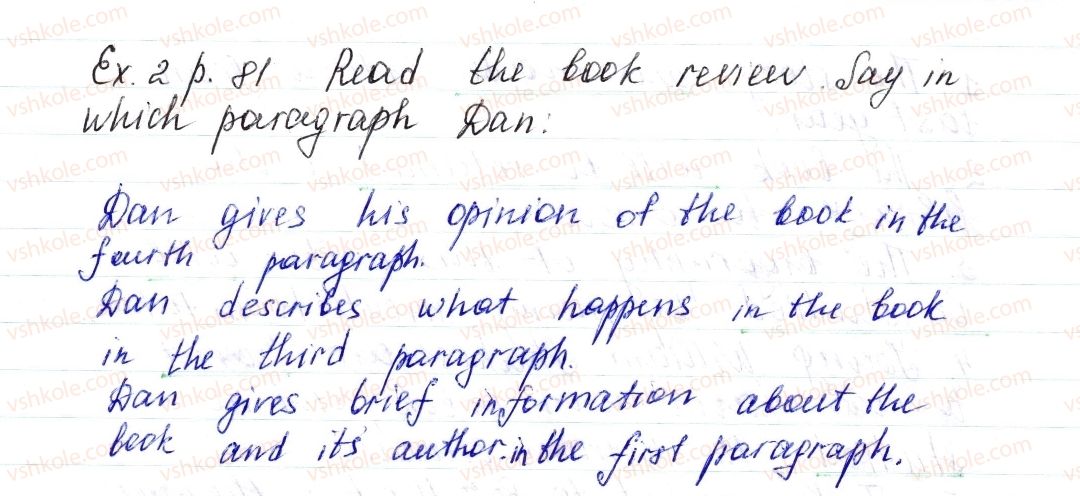 Ex. 2 p. 81 Read the book review. Say in
which paragraph Dan:
Dan gives his opinion of the book in the
fourth paragraph.
Dan describes what happens in the book
in the third paragraph.
Dan gives brief information about the
book and its' author in the first paragraph.